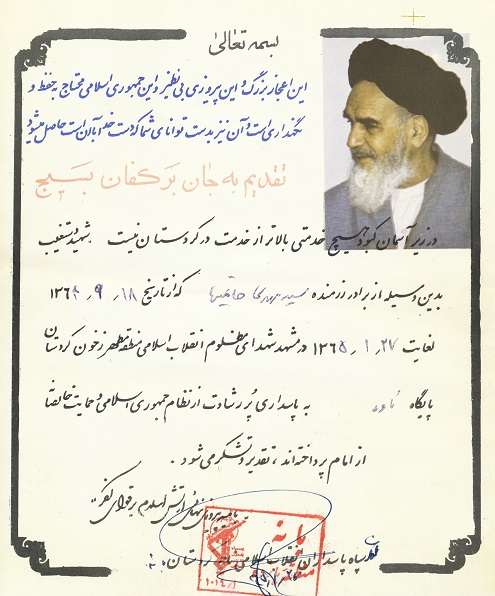 بسمه تعالیٰ
این اعجاز بزرگ و این پیروزی بی نظیر و این جمهوری اسلامی محتاج به حفظ و
نگهداری است و آن نیز بدست توانای شما که دست خدا با آن است حاصل میشود
تقدیم به جان بر کفان بسیج
در زیر آسمان کبود هیچ خدمتی بالاتر از خدمت در کردستان نیست شهید دستغیب
بدین وسیله از برادر رزمنده سید مهدی که از تاریخ ۱۸ ، ۹ ، ۱۳۶۴
لغایت ۲۷ ، ۱ ، ۱۳۶۵ در مشهد شهدای مظلوم انقلاب اسلامی منطقه مطهر ز خون کردستان
پایگاه به پاسداری پر رشادت از نظام جمهوری اسلامی و حمایت خالصانه
از امام پرداخته‌اند ، تقدیر و تشکر می شود .
با امید پیروزی نهائی ارتش اسلام بر قوای کفر
بانه
سپاه پاسداران انقلاب اسلامی